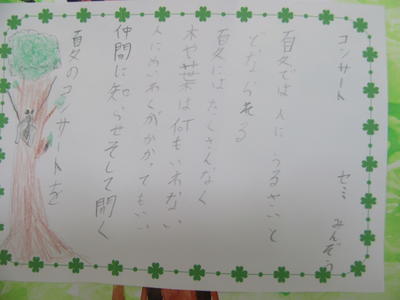 コンサート
セミ みんぞう
夏では人に うるさいと
どなられる
夏には たくさんなく
木や葉は何もいわない
人にめいわくがかかってもいい
仲間に知らせそして開く
夏のコンサートを